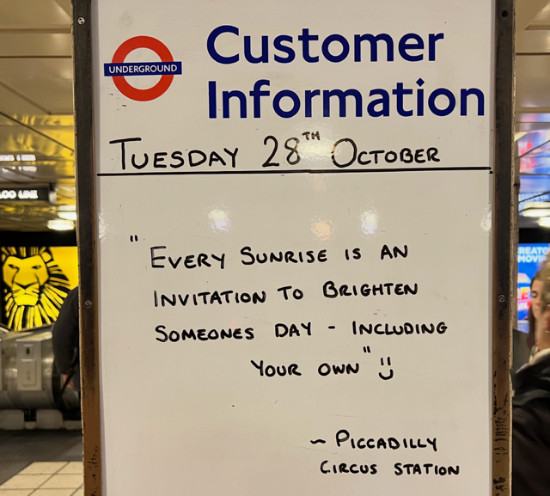 UNDERGROUND
Customer
Information
TUESDAY 28TH OCTOBER
"EVERY SUNRISE IS AN
INVITATION TO BRIGHTEN
SOMEONES DAY - INCLUDING
YOUR OWN" :)
~ PICCADILLY
CIRCUS STATION